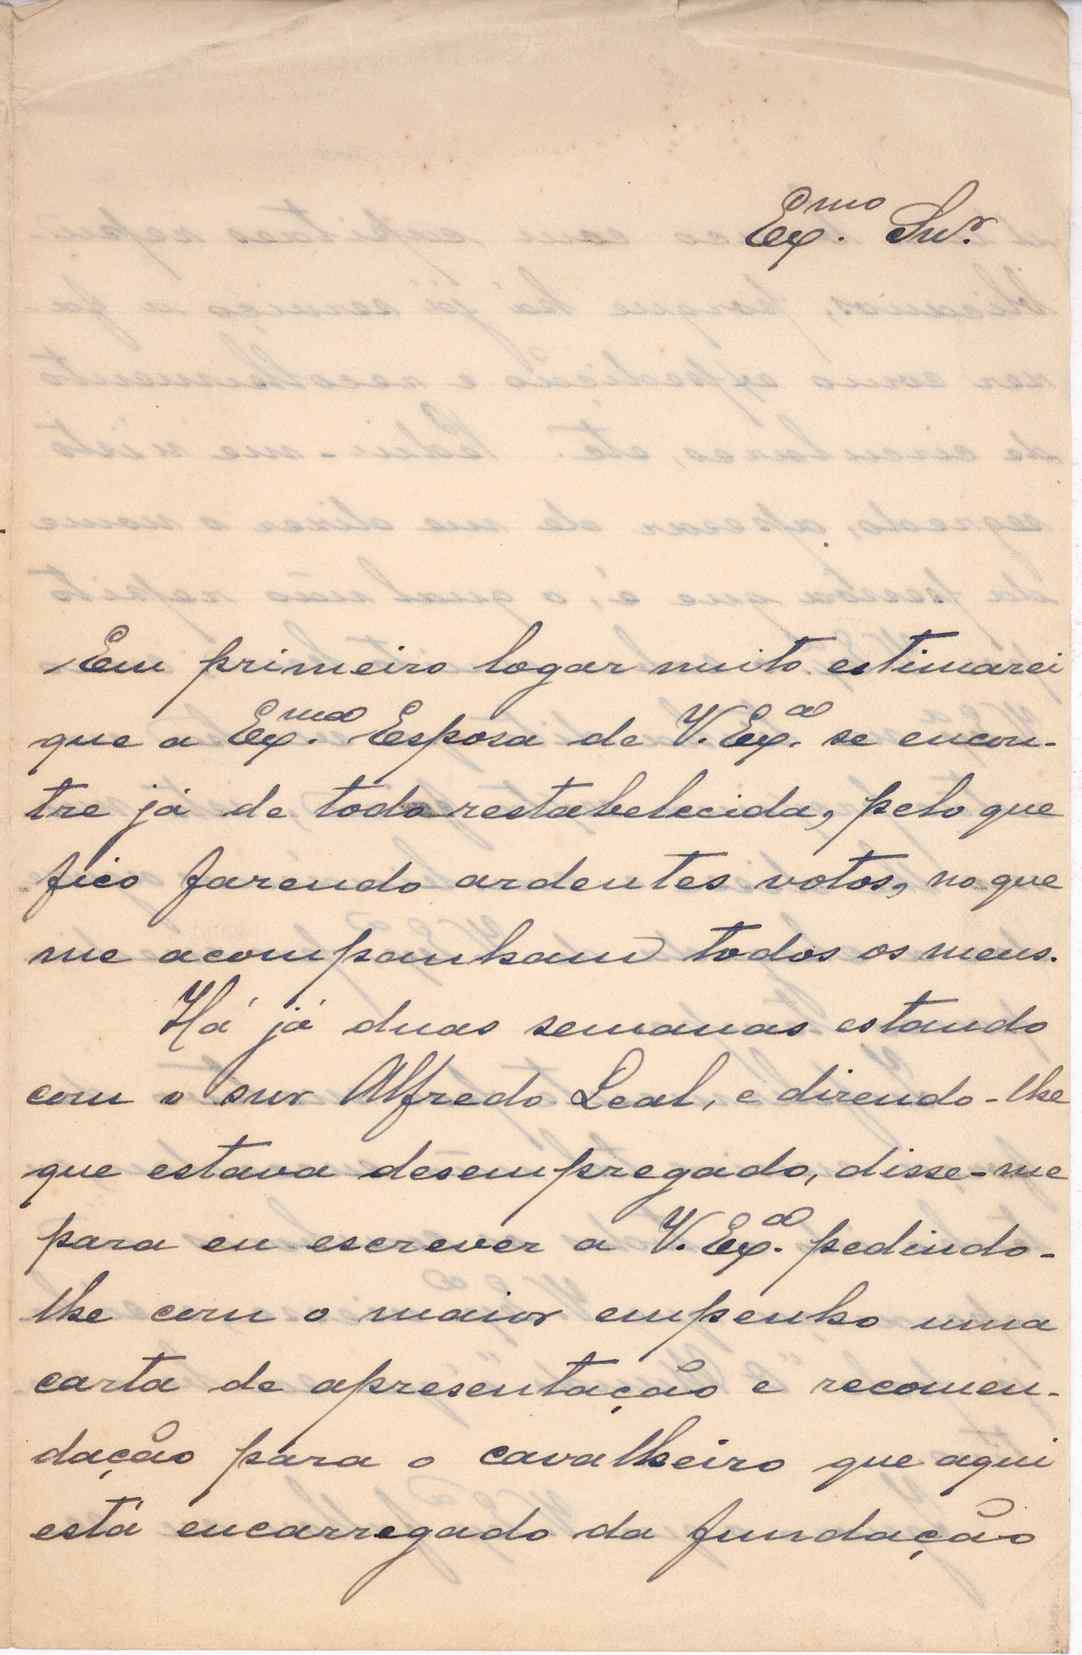 Ex.mo Snr.
Em primeiro logar muito estimarei
que a Ex.ma Esposa de V. Ex.a se encon-
tre já de todo restabelecida, pelo que
fico fazendo ardentes votos, no que
me acompanham todos os meus.
Há já duas semanas estando
com o snr Alfredo Leal, e dizendo-lhe
que estava desempregado, disse-me
para eu escrever a V. Ex.a pedindo-
lhe com o maior empenho uma
carta de apresentação e recomen-
dação para o cavalheiro que aqui
está encarregado da fundação